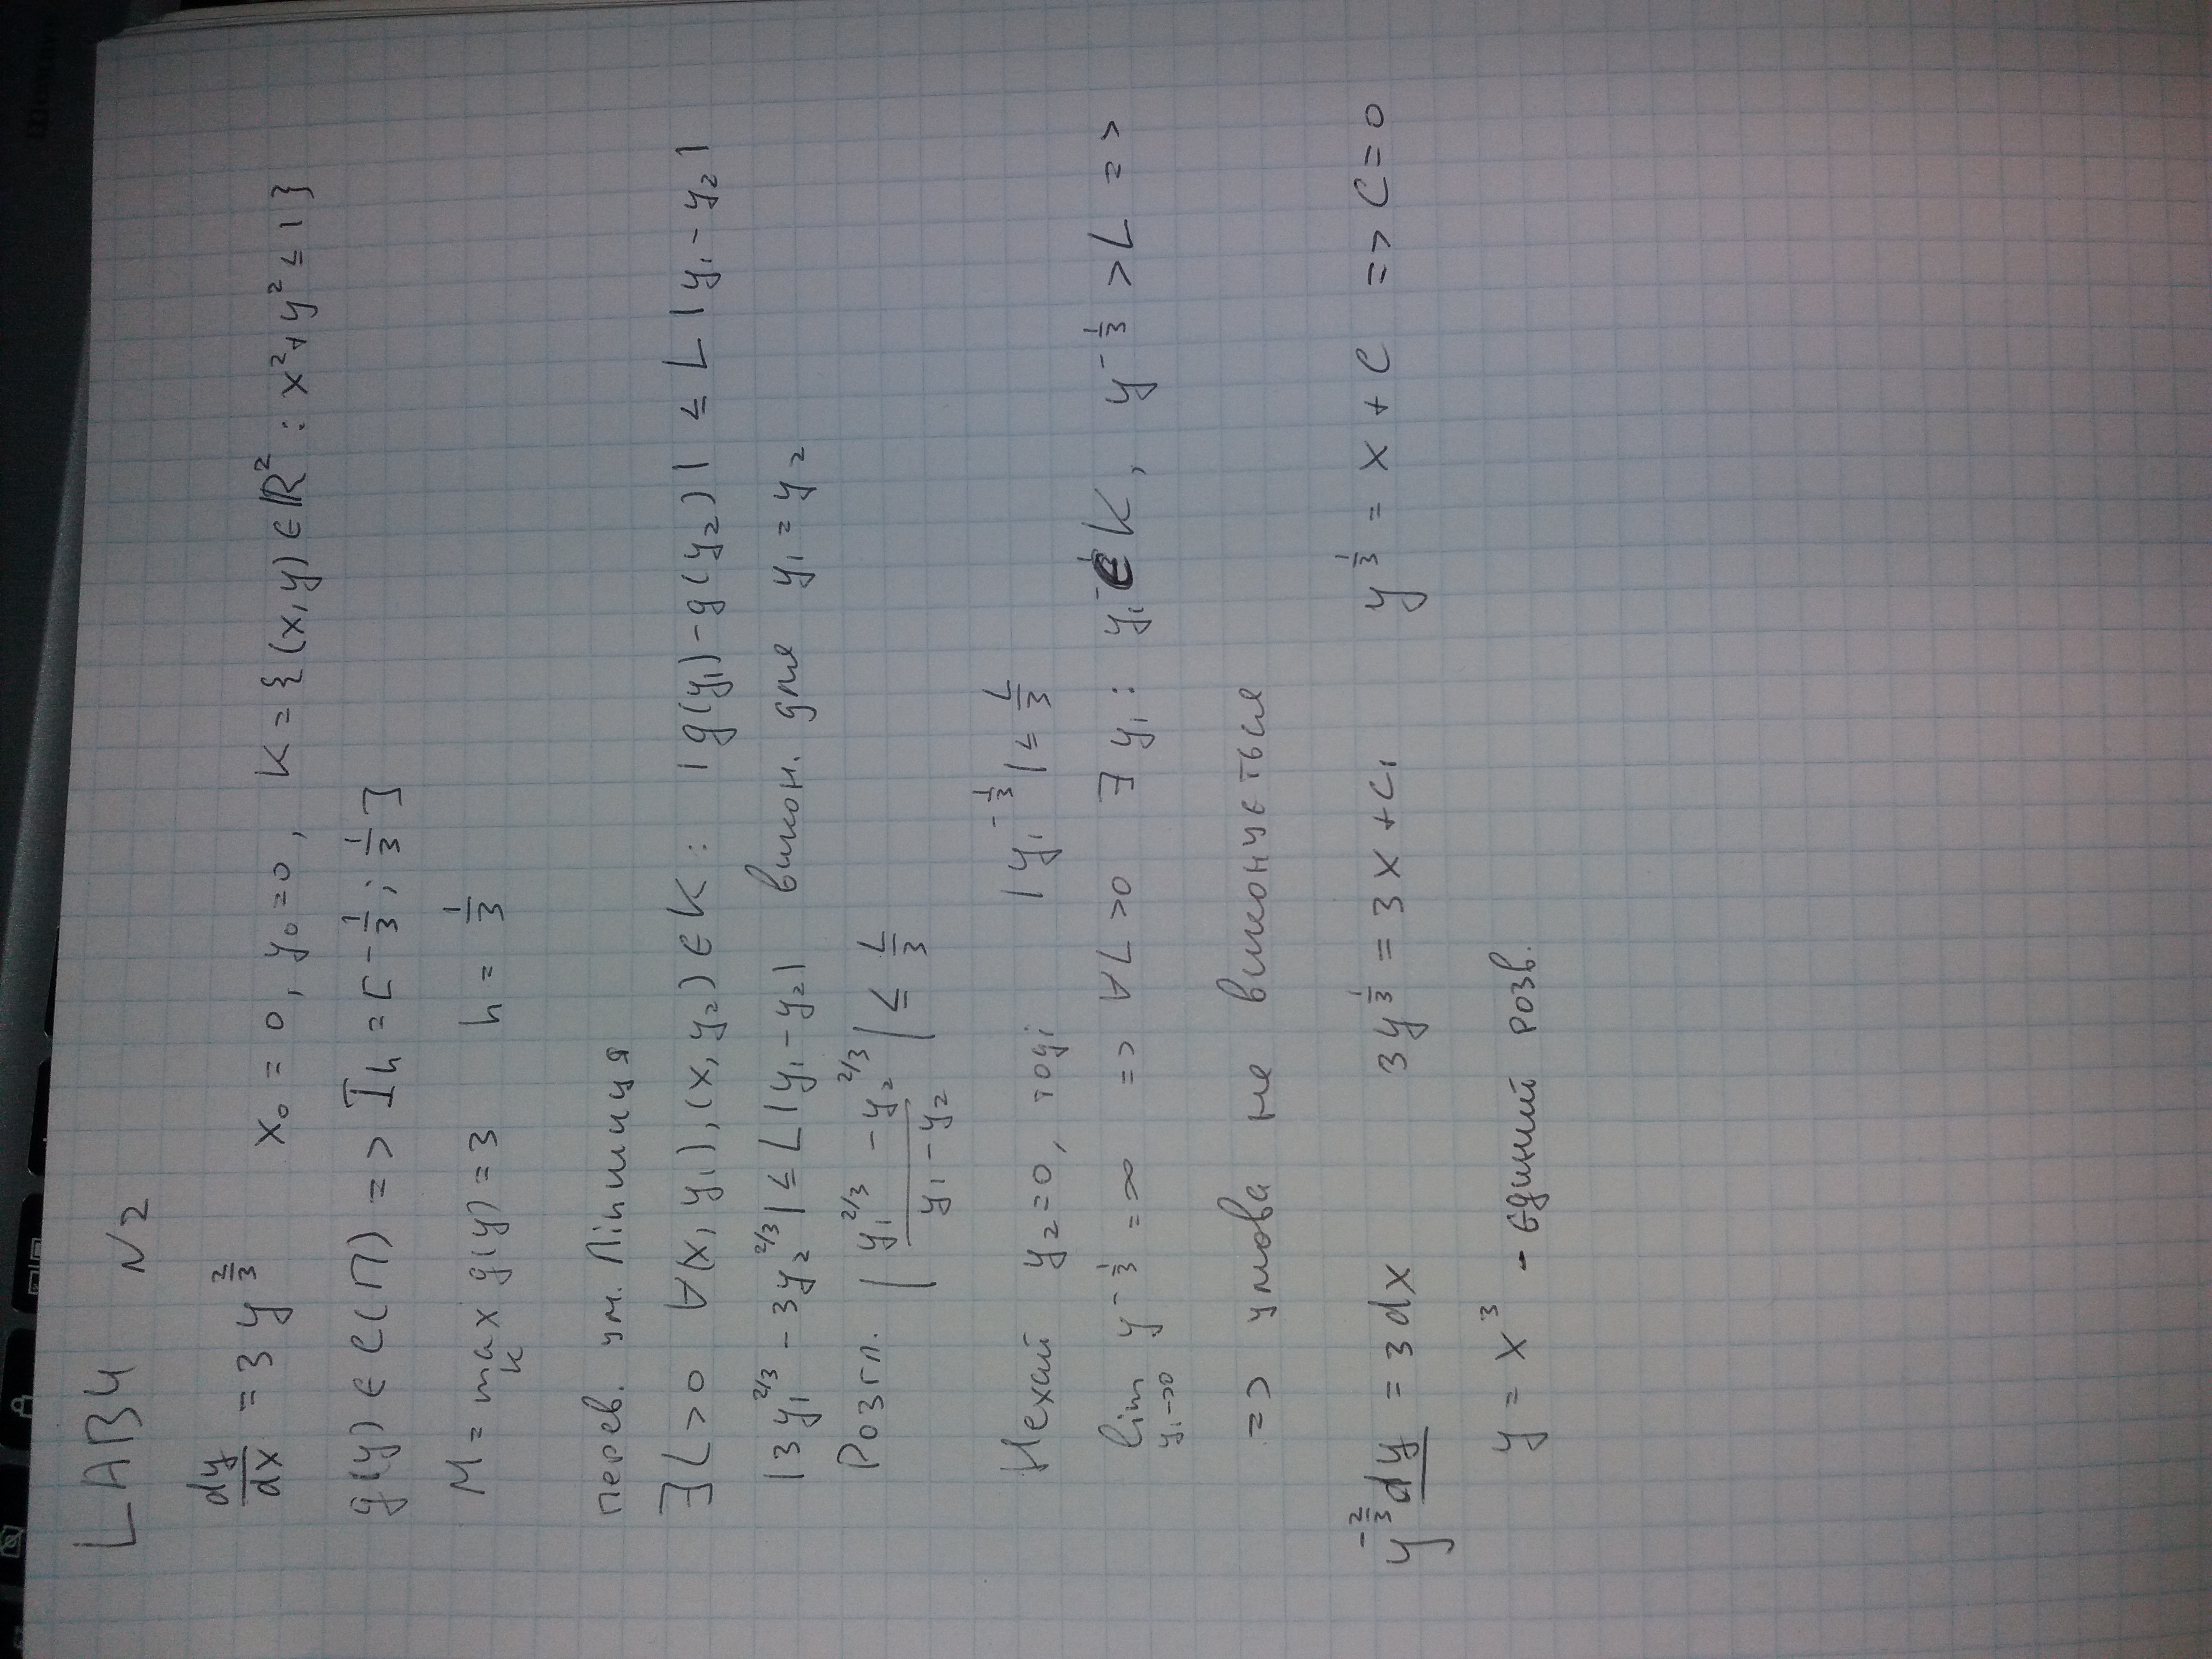 LAB4 N2
dy/dx = 3y^{2/3} x₀ = 0, y₀ = 0, K = {(x, y) ∈ ℝ² : x² + y² ≤ 1}
g(y) ∈ C(П) => I_h = [-1/3; 1/3]
M = max_K g(y) = 3 h = 1/3
перев. ум. Ліпшиця
∃L > 0 ∀(x, y₁), (x, y₂) ∈ K : |g(y₁) - g(y₂)| ≤ L|y₁ - y₂|
|3y₁^{2/3} - 3y₂^{2/3}| ≤ L|y₁ - y₂| викон. для y₁ = y₂
Розгл. |(y₁^{2/3} - y₂^{2/3})/(y₁ - y₂)| ≤ L/3
Нехай y₂ = 0, тоді |y₁^{-1/3}| ≤ L/3
lim_{y₁->0} y^{-1/3} = ∞ => ∀L > 0 ∃y₁ : y₁ ∈ K, y^{-1/3} > L =>
=> умова не виконується
y^{-2/3} dy = 3dx 3y^{1/3} = 3x + C₁ y^{1/3} = x + C => C = 0
y = x³ - єдиний розв.